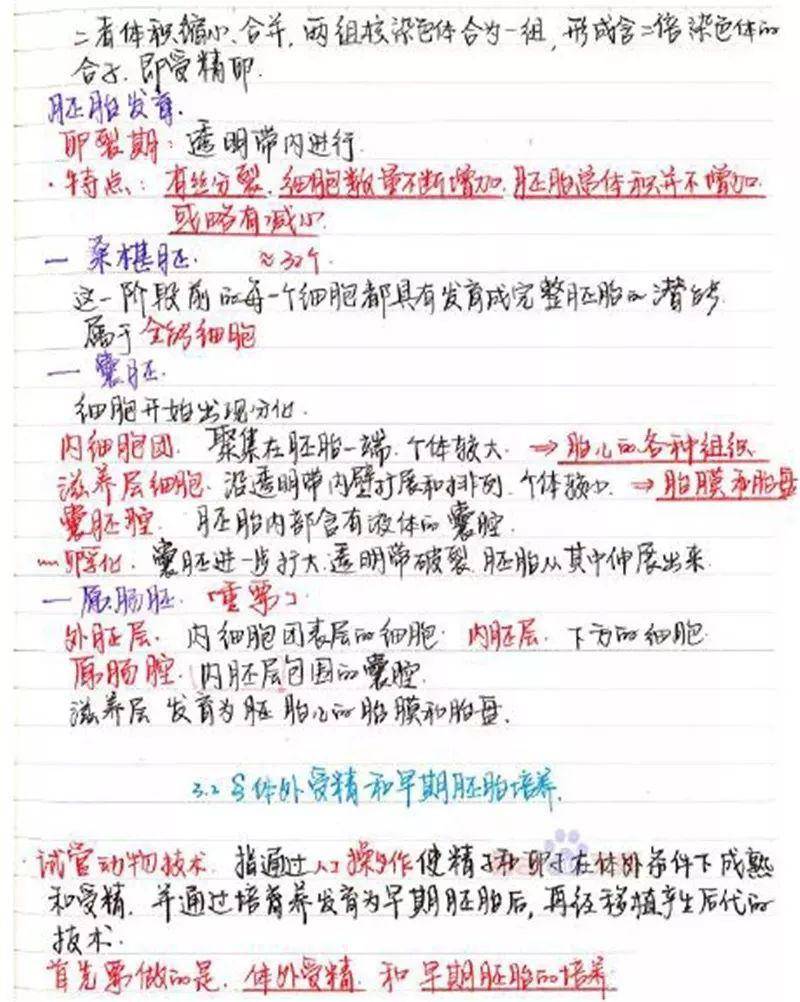 二者体积缩小、合并,两组核染色体合为一组,形成含二倍染色体的
合子,即受精卵.
胚胎发育.
卵裂期:透明带内进行.
·特点:有丝分裂.细胞数量不断增加.胚胎总体积并不增加.
或略有减小.
一 桑椹胚. ≈32个.
这一阶段前的每一个细胞都具有发育成完整胚胎的潜能.
属于全能细胞
一 囊胚.
细胞开始出现分化.
内细胞团. 聚集在胚胎一端.个体较大. ⇒胎儿的各种组织.
滋养层细胞. 沿透明带内壁扩展和排列.个体较小. ⇒胎膜和胎盘
囊胚腔. 胚胎内部含有液体的囊腔.
孵化. 囊胚进一步扩大.透明带破裂.胚胎从其中伸展出来.
一原肠胚.「重要」
外胚层. 内细胞团表层的细胞. 内胚层. 下方的细胞.
原肠腔. 内胚层包围的囊腔.
滋养层 发育为胚胎儿的胎膜和胎盘.
3.2 体外受精和早期胚胎培养.
·试管动物技术. 指通过人工操作使精子和卵子在体外条件下成熟
和受精. 并通过培育养发育为早期胚胎后,再经移植产生后代的
技术.
首先要做的是.体外受精 和 早期胚胎的培养